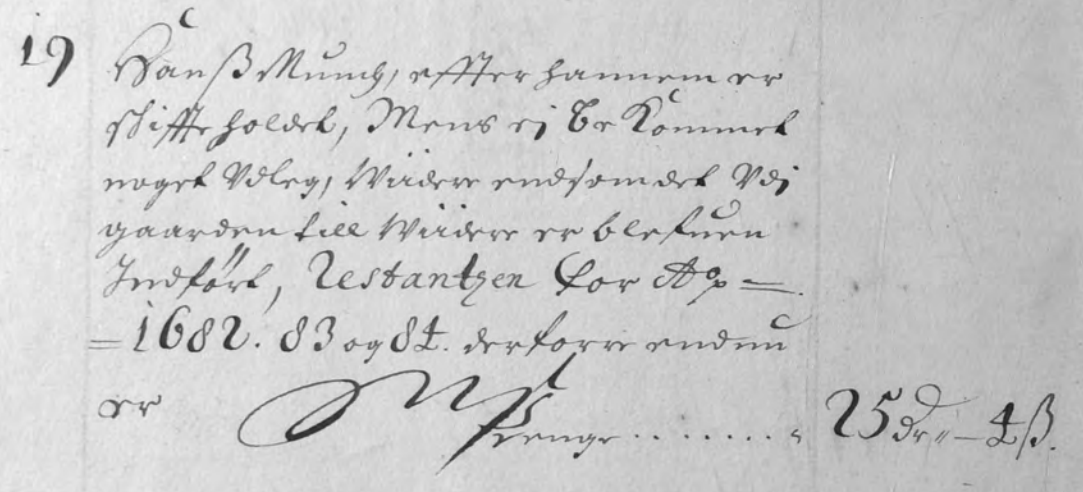 19 Hanß Munch, effter hannem er
skiffte holdet, Mens ej be Kommet
noget Vdleg, Wiidere end som det Vdj
gaarden till Wiidere er blefuen
Indført, Restantzen for Aº =
= 1682. 83 og 84. derforre endnu
er Penge . . . . . . . . 25 dr – 4 ß.